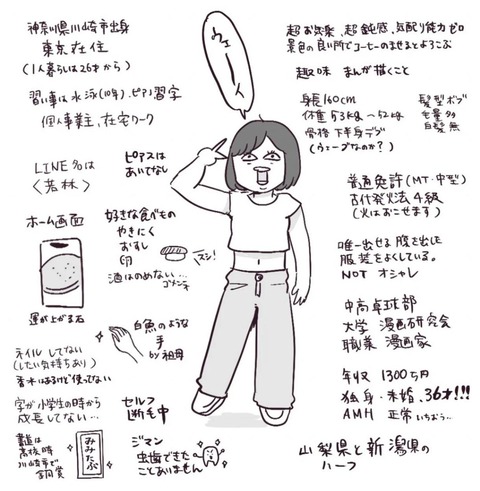 神奈川県川崎市出身
東京在住
(1人暮らしは26才から)
習い事は水泳(10年)、ピアノ、習字
個人事業主、在宅ワーク
LINE名は
〈若林〉
ピアスは
あいてなし
ホーム画面
運が上がる石
好きな食べもの
やきにく
おすし
卵
スシ!
酒はのめない…
ゴメンネ
白魚のような
手
by祖母
ネイルしてない
(したい気持ちあり)
香水はあるけど使ってない
字が小学生の時から
成長してない…
書道は
高校時
川崎市で
銅賞
みみたぶ
セルフ
断毛中
ジマン
虫歯できた
ことありません
ウェーイ
超お気楽、超鈍感、気配り能力ゼロ
景色の良い所でコーヒーのませるとよろこぶ
趣味 まんが描くこと
身長160cm
体重53kg〜52kg
骨格下半身デブ
(ウェーブなのか?)
髪型ボブ
毛量多
白髪無
普通免許(MT・中型)
古代発火法4級
(火はおこせます)
唯一出せる腹を出した
服装をよくしている。
NOTオシャレ
中高卓球部
大学 漫画研究会
職業 漫画家
年収 1300万円
独身・未婚、36才!!!
AMH 正常いちおう…
山梨県と新潟県の
ハーフ